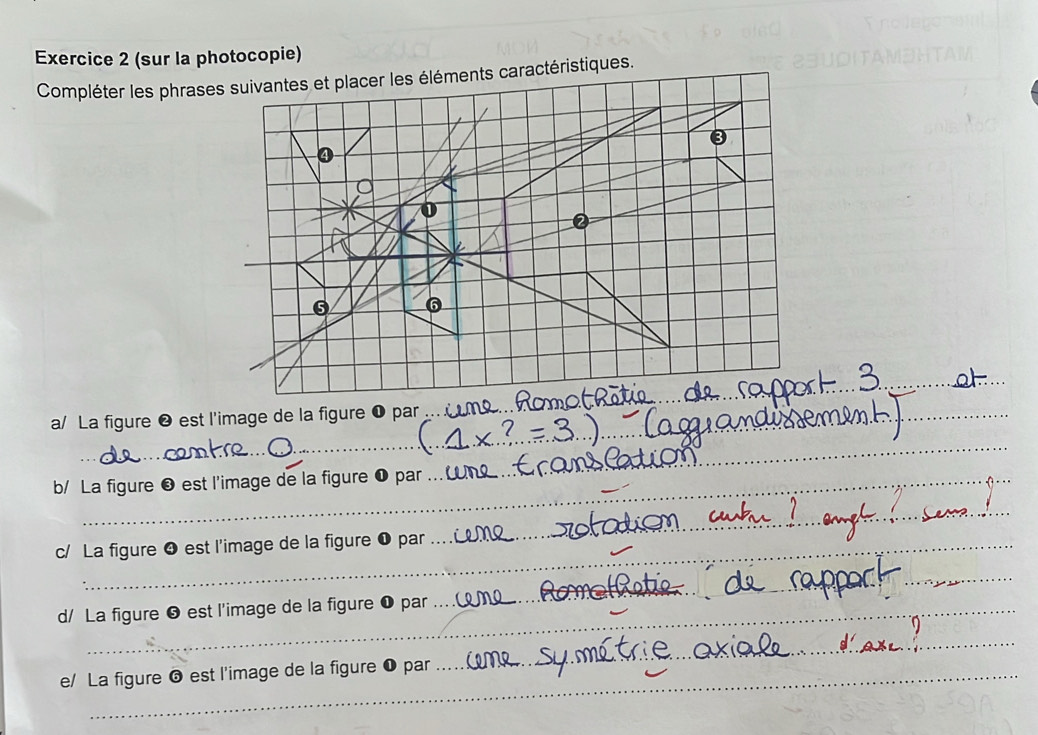 Exercice 2 (sur la photocopie)
Compléter les phrases suivantes et placer les éléments caractéristiques.
4
3
O
1
2
5
6
a/ La figure 2 est l'image de la figure 1 par une homothétie de rapport 3 et
de centre O (1x? = 3) (aggrandissement)
b/ La figure 3 est l'image de la figure 1 par une translation
c/ La figure 4 est l'image de la figure 1 par une rotation centre ? angle ? sens ?
d/ La figure 5 est l'image de la figure 1 par une homothetie de rapport
e/ La figure 6 est l'image de la figure 1 par une symétrie axiale d'axe ?